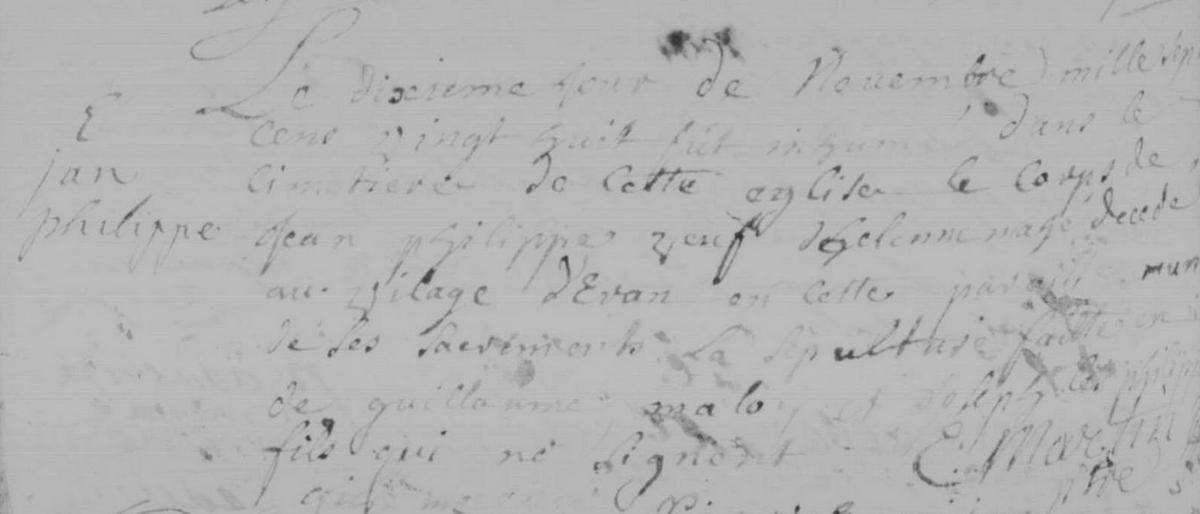 Le dixieme jour de Novembre mille sep
E cens vingt huit fut inhumé dans le
jan cimetiere de cette eglise le corps de
philippe Jean philippe veuf decede
au vilage d'Evan en cette mun
de ses sacrements La sepulture faitte en
de guillaume malo et Joseph les philip
fils qui ne signent E. Martin
ptre